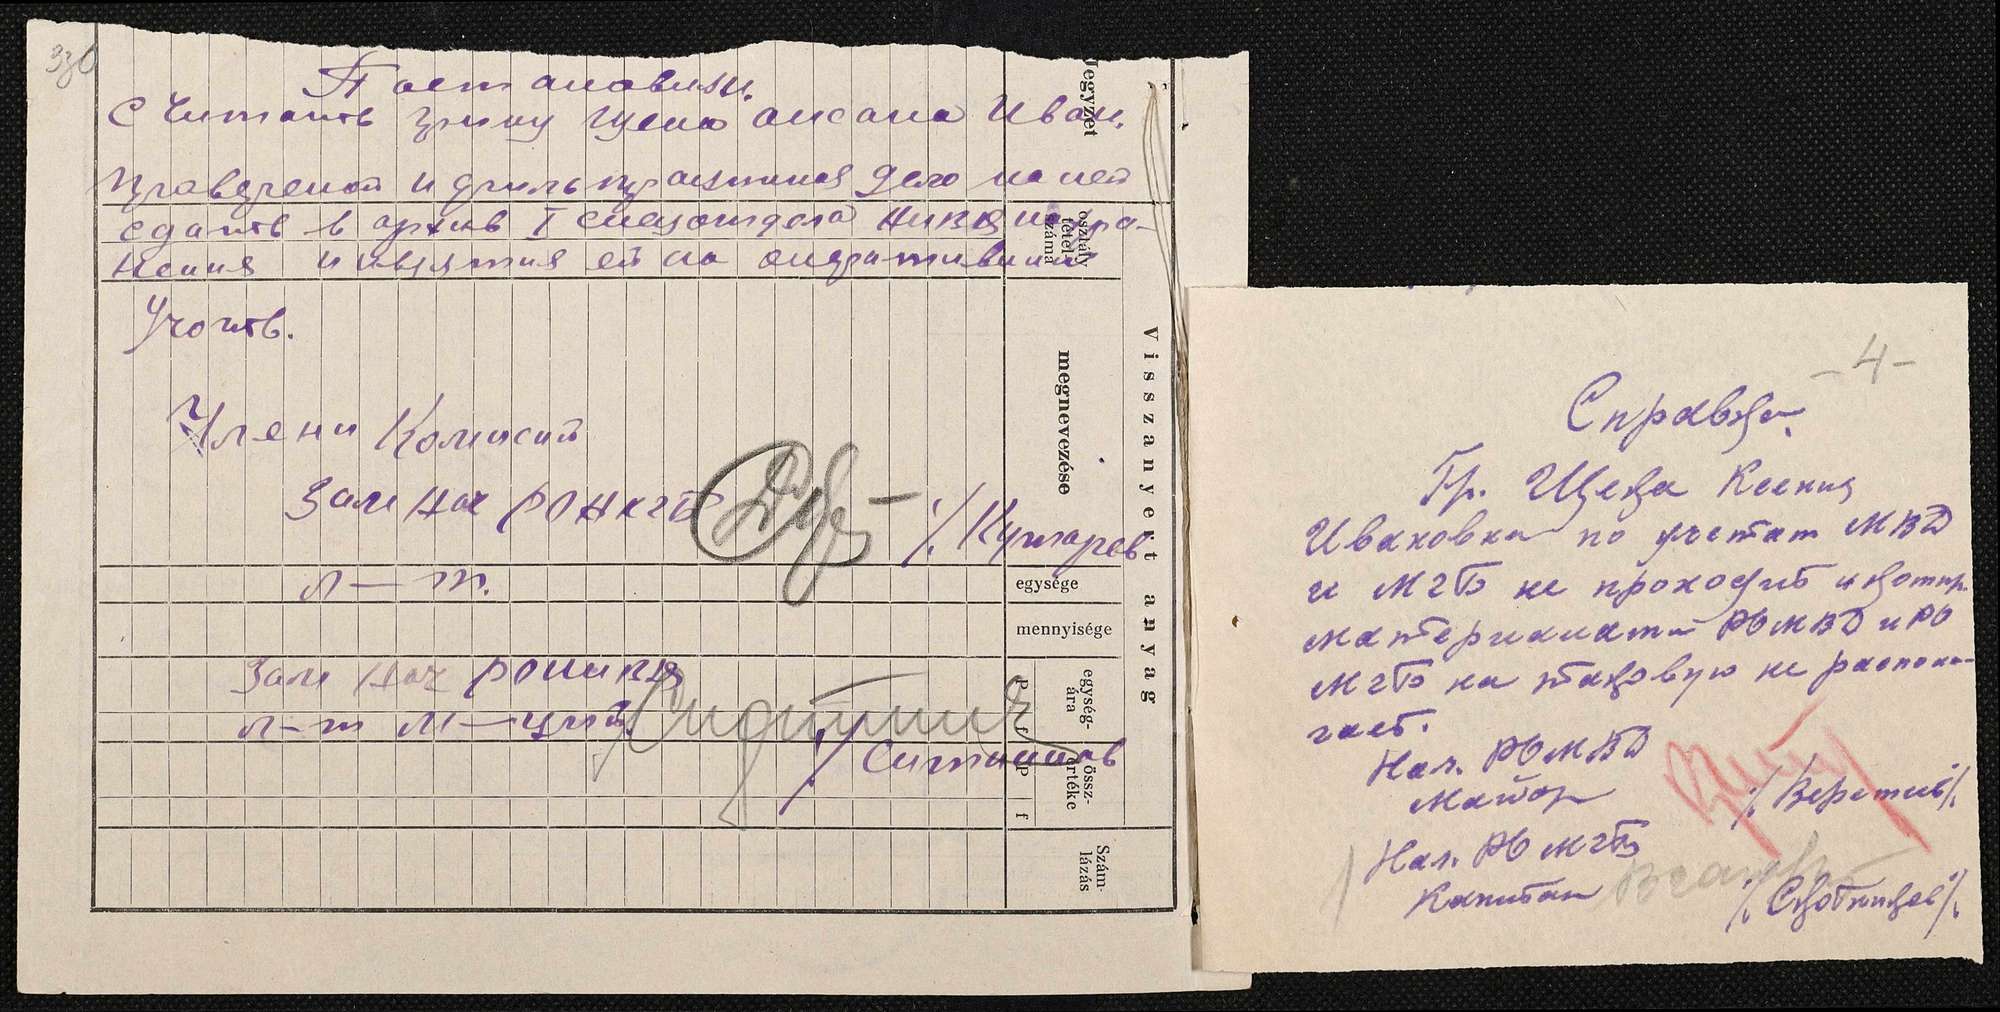 Постановили.
Считать гр-ку Щека Аксана Иван.
проверенной и фильтрационное дело на ней
сдать в архив I спецотдела НКВД
и ей на оперативный
Учоть.
Члени Комисий
Зам Нач РОНКГБ
/Кушарев
л-т.
Зам Нач РОНКВД
л-т м-ции
/Ситников
Jegyzet
osztály
tétel-
száma
megnevezése
egysége
mennyisége
egység-
ára
P f
össz-
értéke
P f
Szám-
lázás
Visszanyert anyag
-4-
Справка.
Гр. Щека Ксения
Ивановна по учетам МВД
и МГБ не проходит и компр.
материалами РОМВД и РО
МГБ на таковую не распола-
гает.
Нач. РОМВД
Майор
Нач. РО МГБ
Капитан
/Скотников/